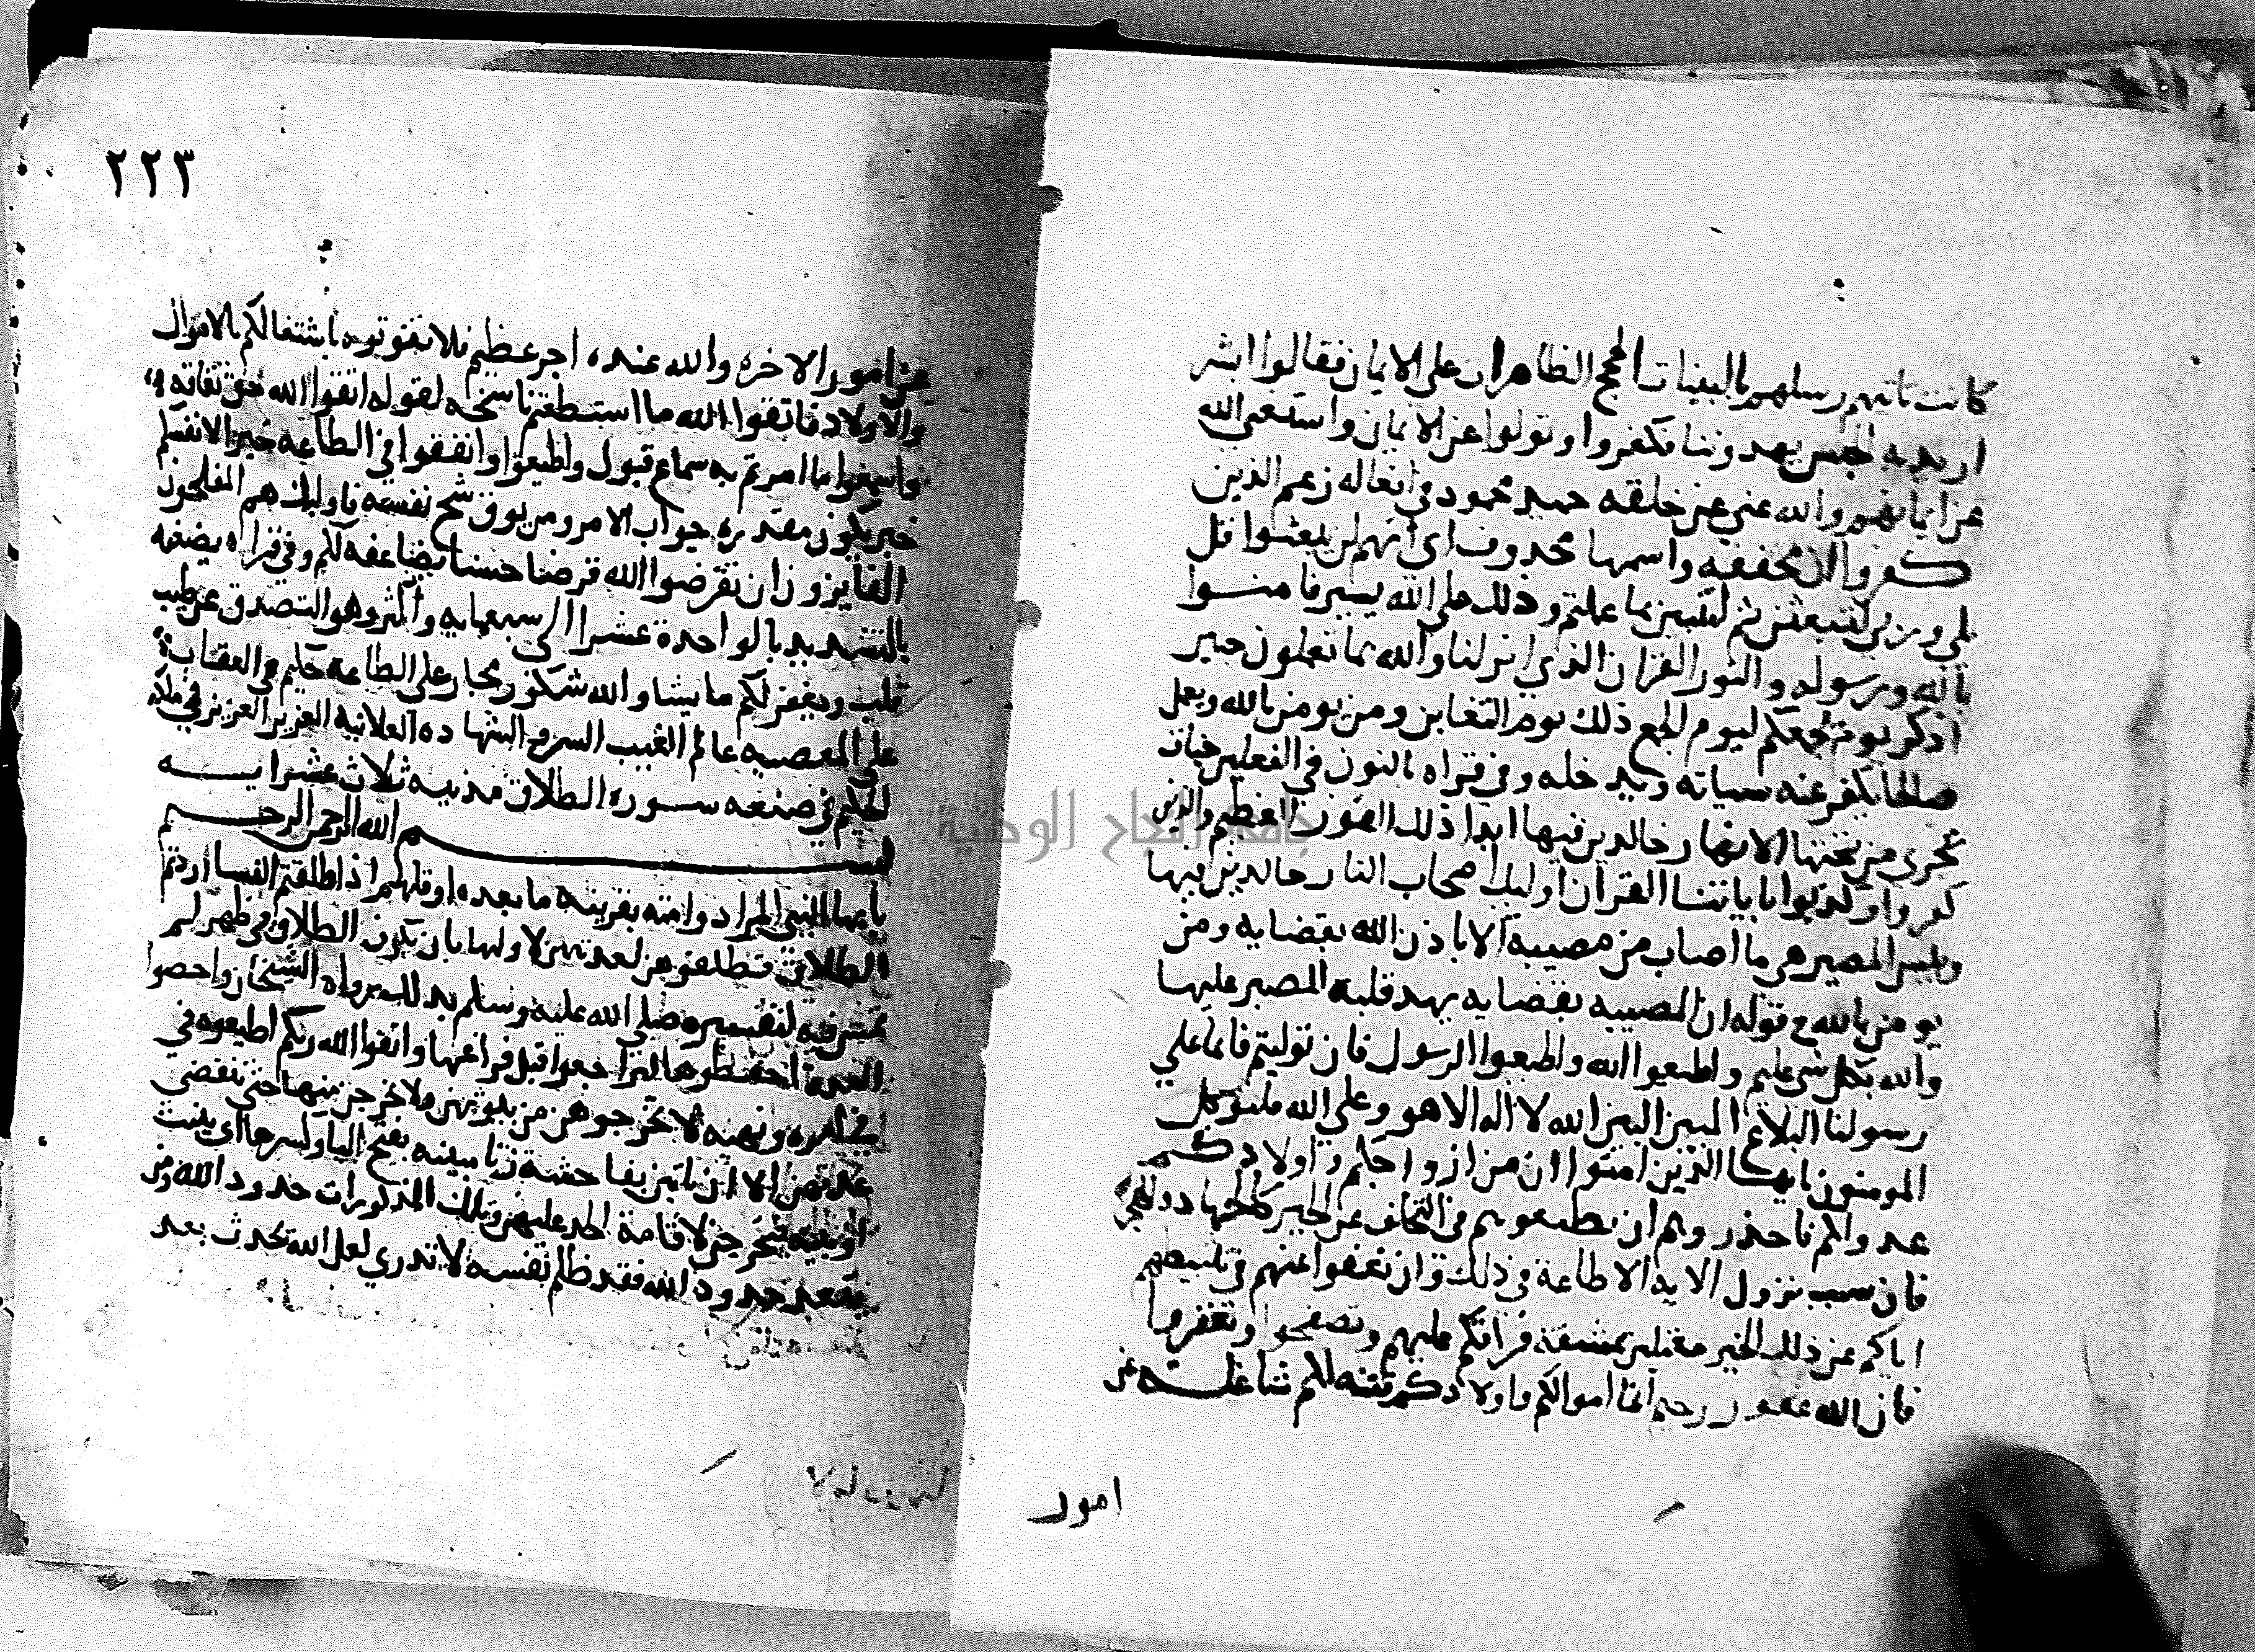 كانت تاتيهم رسلهم بالبينات الحجج الظاهرات على الايمان فقالوا ابشر
اريد به الجنس يهدوننا فكفروا وتولوا عن الايمان واستغنى الله
عن ايمانهم والله غني عن خلقه حميد محمود في افعاله زعم الذين
كفروا ان مخففة واسمها محذوف اي انهم لن يبعثوا قل
بلى وربي لتبعثن ثم لتنبين بما عملتم وذلك على الله يسير فامنوا
بالله ورسوله والنور القران الذي انزلنا والله بما تعملون خبير
اذكر يوم يجمعكم ليوم الجمع ذلك يوم التغابن ومن يومن بالله ويعمل
صالحا يكفر عنه سياته ويدخله وفي قراه بالنون في الفعلين جنات
تجري من تحتها الانهار خالدين فيها ابدا ذلك الفوز العظيم والذين
كفروا وكذبوا باياتنا القران اوليك اصحاب النار خالدين فيها
وبيس المصير هي ما اصاب من مصيبة الا باذن الله بقضايه ومن
يومن بالله في قوله ان المصيبه بقضايه يهد قلبه للصبر عليها
والله بكل شي عليم واطيعوا الله واطيعوا الرسول فان توليتم فانما على
رسولنا البلاغ المبين البين الله لا اله الا هو وعلى الله فليتوكل
المومنون يايها الذين امنوا ان من ازواجكم واولادكم
عدوا لكم فاحذروهم ان تطيعوهم في التخلف عن الخير كالجهاد والهجرة
فان سبب نزول الايه الاطاعة في ذلك وان تعفوا عنهم في تثبيطهم
اياكم عن ذلك الخير معتلين بمشقة فراقكم عليهم وتصفحوا وتغفروا
فان الله غفور رحيم انما اموالكم واولادكم فتنه لكم شاغلة عن
امور
٢٢٣
عن امور الاخره والله عنده اجر عظيم فلا تفوتوه باشتغالكم بالاموال
والاولاد فاتقوا الله ما استطعتم ناسخه لقوله اتقوا الله حق تقاته
واسمعوا ما امرتم به سماع قبول واطيعوا وانفقوا في الطاعة خيرا لانفسكم
خبر يكون مقدره جواب الامر ومن يوق شح نفسه فاوليك هم المفلحون
الفايزون ان تقرضوا الله قرضا حسنا يضاعفه لكم وفي قراه يضعفه
بالتشديد بالواحدة عشرا الى سبعمايه واكثر وهو التصدق عن طيب
قلب ويغفر لكم ما يشا والله شكور مجاز على الطاعة حليم في العقاب
على المعصيه عالم الغيب السر والشهاده العلانية العزيز في ملكه
الحكيم في صنعه سورة الطلاق مدنيه ثلاث عشر ايه
بسم الله الرحمن الرحيم
يايها النبي المراد وامته بقرينة ما بعده او قل لهم اذا طلقتم النسا اردتم
الطلاق فطلقوهن لعدتهن لاولها بان يكون الطلاق في طهر لم
تمس فيه لتفسيره صلى الله عليه وسلم بذلك رواه الشيخان واحصوا
العدة احفظوها لتراجعوا قبل فراغها واتقوا الله ربكم اطيعوه في
امره ونهيه لا تخرجوهن من بيوتهن ولا يخرجن منها حتى تنقضي
عدتهن الا ان ياتين بفاحشة زنا مبينه بفتح اليا وكسرها اي بينت
او بينة فيخرجن لاقامة الحد عليهن وتلك المذكورات حدود الله ومن
يتعد حدود الله فقد ظلم نفسه لا تدري لعل الله يحدث بعد
جامعة النجاح الوطنية